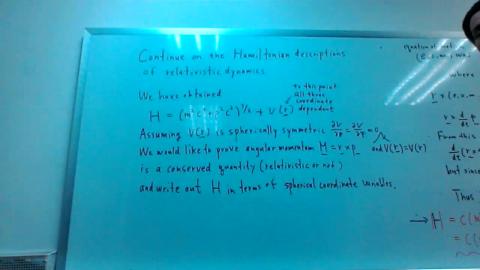 Continue on the Hamiltonian descriptions
of relativistic dynamics
We have obtained
to this point
all three
coordinate
dependent
H = (m²c⁴+p²c²)^{1/2} + V(r)
Assuming V(r) is spherically symmetric ∂V/∂θ = ∂V/∂φ = 0
and V(r)=V(r)
We would like to prove angular momentum M = r × p
is a conserved quantity (relativistic or not)
and write out H in terms of spherical coordinate variables.
equation of
where
r × d/dt p
From this
but since
Thus
→ H = c(
= c(